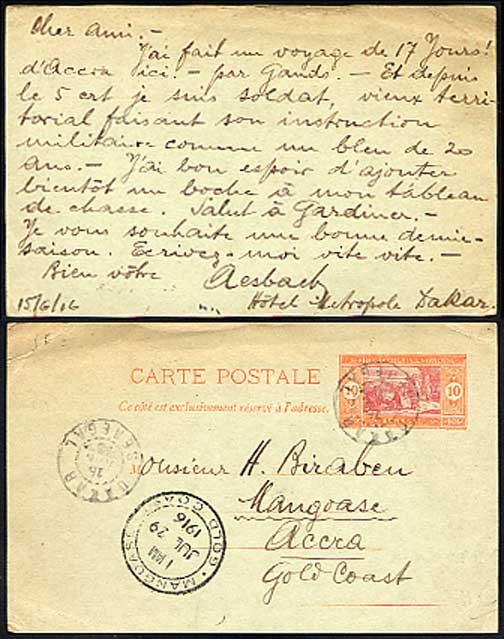 Cher Ami. –
J'ai fait un voyage de 17 Jours!
d'Accra ici. – par Gands. – Et depuis
le 5 crt je suis soldat, vieux terri-
torial faisant son instruction
militaire comme un bleu de 20
ans. – J'ai bon espoir d'ajouter
bientôt un boche à mon tableau
de chasse. Salut à Gardiner. –
Je vous souhaite une bonne demie-
saison. Ecrivez-moi vite vite. –
Bien vôtre Aesbach
15/6/16 Hôtel Metropole Dakar.
CARTE POSTALE
Ce côté est exclusivement réservé à l'adresse.
10 10
DAKAR
SENEGAL
16
Monsieur H. Biraben
Mangoase
Accra
Gold Coast
MANGOASE
GOLD COAST
JUL 29
1916